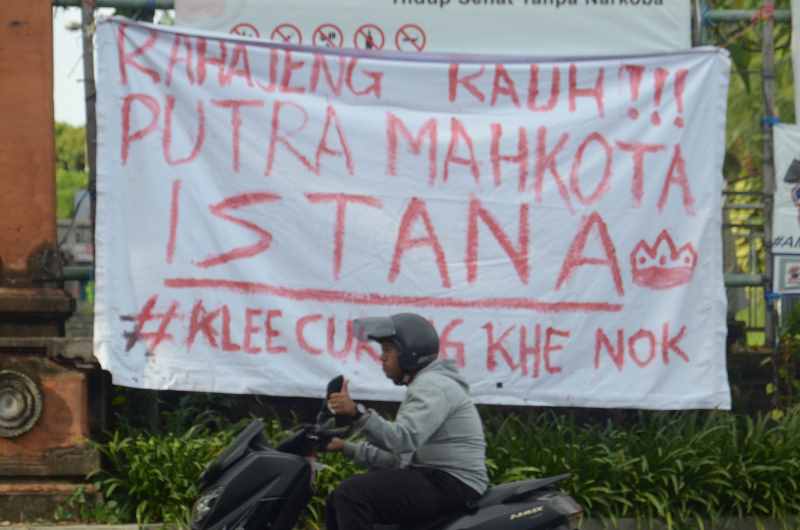 Hidup Sehat Tanpa Narkoba
RAHAJENG KAUH!!!
PUTRA MAHKOTA
ISTANA
#KLEECU G KHE NOK
#A
NMAX